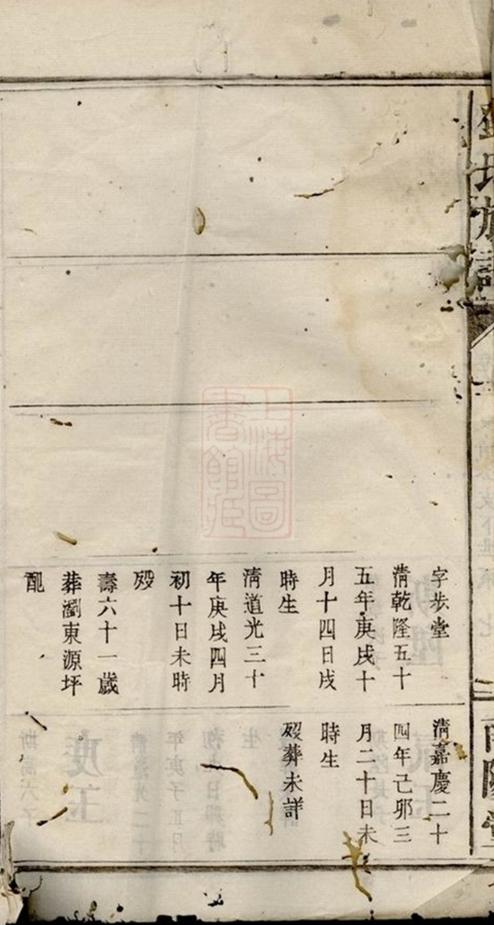 氏族譜
南陽堂
字步堂
清乾隆五十
五年庚戌十
月十四日戌
時生
清道光三十
年庚戌四月
初十日未時
歿
壽六十一歲
葬瀏東源坪
配
清嘉慶二十
四年己卯三
月二十日未
時生
歿葬未詳
上海圖
書館藏